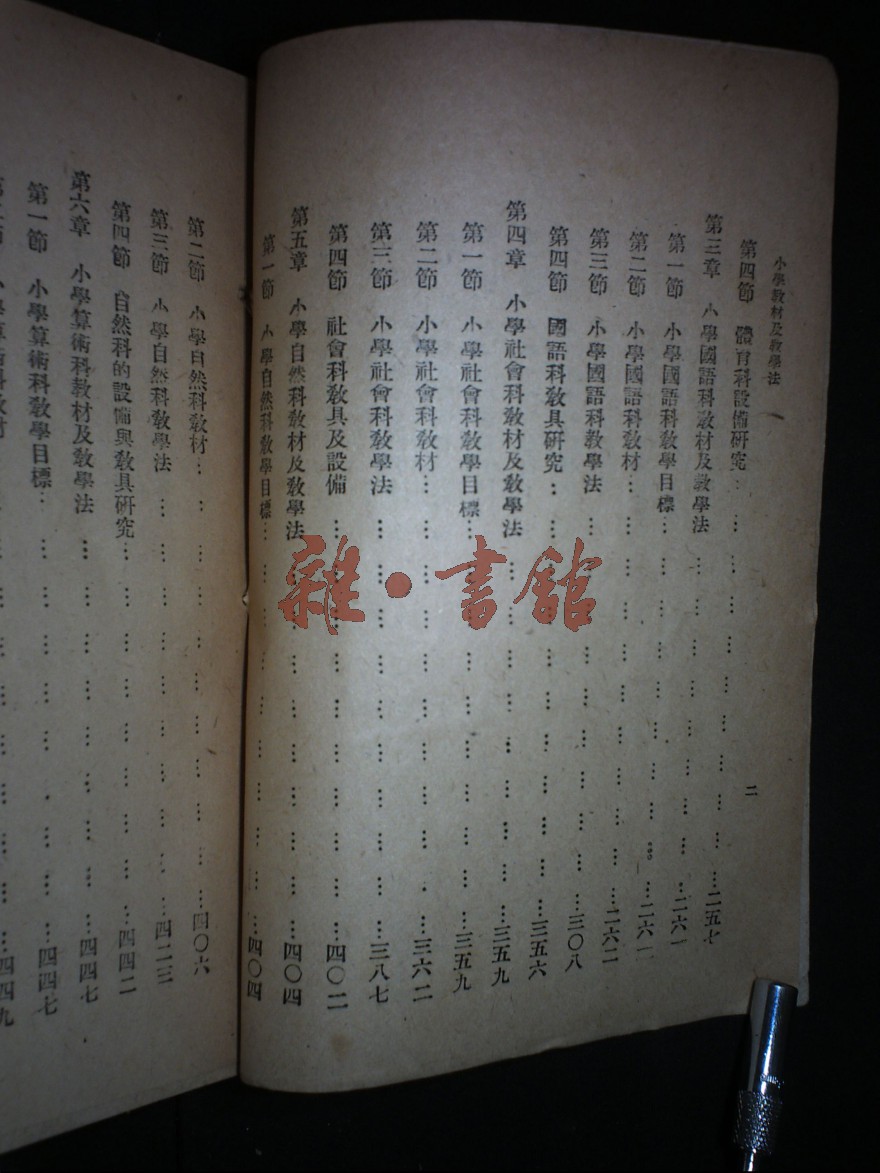 小學教材及教學法
二
第四節 體育科設備研究………二五七
第三章 小學國語科教材及教學法………二六一
第一節 小學國語科教學目標………二六一
第二節 小學國語科教材………二六二
第三節 小學國語科教學法………三〇八
第四節 國語科教具研究………三五六
第四章 小學社會科教材及教學法………三五九
第一節 小學社會科教學目標………三五九
第二節 小學社會科教材………三六二
第三節 小學社會科教學法………三八七
第四節 社會科教具及設備………四〇二
第五章 小學自然科教材及教學法………四〇四
第一節 小學自然科教學目標………四〇四
第二節 小學自然科教材………四〇六
第三節 小學自然科教學法………四二三
第四節 自然科的設備與教具研究………四四二
第六章 小學算術科教材及教學法………四四七
第一節 小學算術科教學目標………四四七
小學算術科教材………四四九
雜·書館